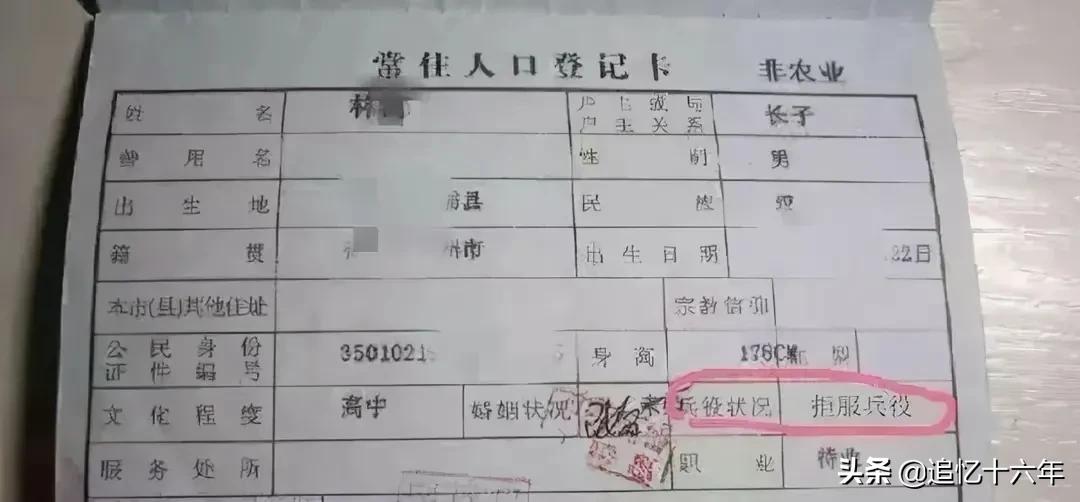 常住人口登记卡 非农业
姓名 林 户主或与户主关系 长子
曾用名 性别 男
出生地 县 民族 汉
籍贯 州市 出生日期 22日
本市(县)其他住址 宗教信仰
公民身份证件编号 3501021 身高 血型
文化程度 高中 婚姻状况 未 兵役状况 拒服兵役
服务处所 职业 待业
头条 @追忆十六年